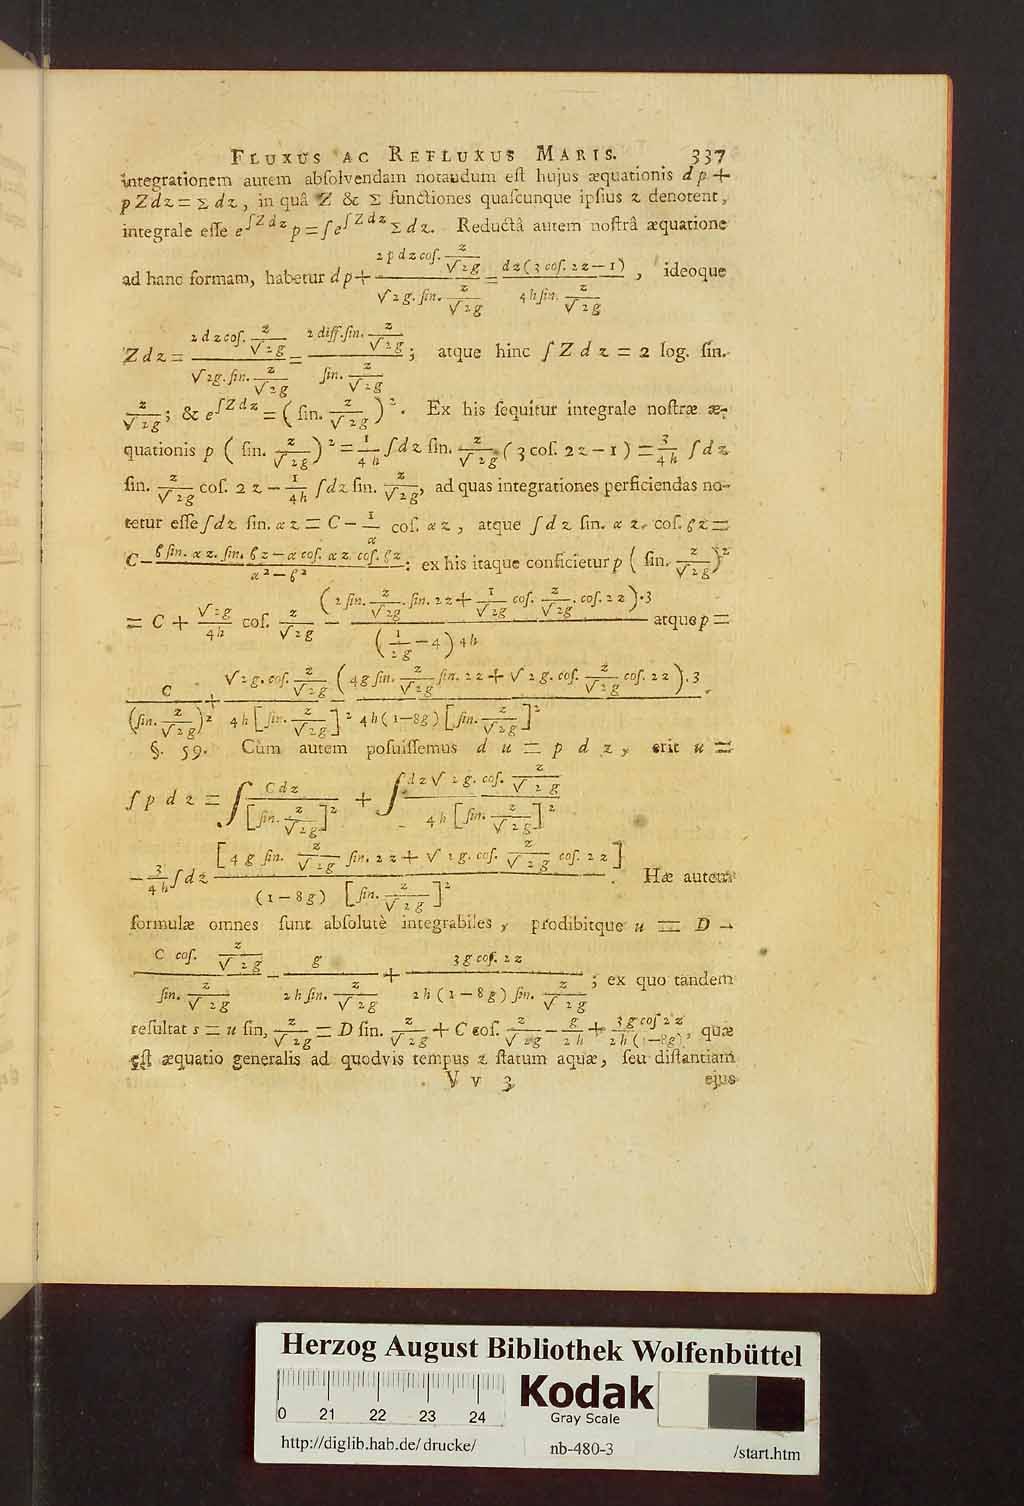 FLUXUS AC REFLUXUS MARIS. 337
integrationem autem abſolvendam notandum eſt hujus æquationis dp +
pZdz = Σdz, in quâ Z & Σ functiones quaſcunque ipſius z denotent,
integrale eſſe e^{∫Zdz} p = ∫e^{∫Zdz} Σdz. Reductâ autem noſtrâ æquatione
ad hanc formam, habetur dp + \frac{2pdz coſ. \frac{z}{√2g}}{√2g. ſin. \frac{z}{√2g}} = \frac{dz(3 coſ. 2z — 1)}{4h ſin. \frac{z}{√2g}}, ideoque
Zdz = \frac{2dz coſ. \frac{z}{√2g}}{√2g. ſin. \frac{z}{√2g}} = \frac{2 diff. ſin. \frac{z}{√2g}}{ſin. \frac{z}{√2g}}; atque hinc ∫Zdz = 2 log. ſin.
\frac{z}{√2g}; & e^{∫Zdz} = (ſin. \frac{z}{√2g})². Ex his ſequitur integrale noſtræ æ-
quationis p (ſin. \frac{z}{√2g})² = \frac{1}{4h} ∫dz ſin. \frac{z}{√2g} (3 coſ. 2z — 1) = \frac{3}{4h} ∫dz
ſin. \frac{z}{√2g} coſ. 2z — \frac{1}{4h} ∫dz ſin. \frac{z}{√2g}, ad quas integrationes perficiendas no-
tetur eſſe ∫dz ſin. αz = C — \frac{1}{α} coſ. αz, atque ∫dz ſin. αz. coſ. ϐz =
C — \frac{ϐ ſin. αz. ſin. ϐz — α coſ. αz. coſ. ϐz}{α² — ϐ²}: ex his itaque conficietur p (ſin. \frac{z}{√2g})²
= C + \frac{√2g}{4h} coſ. \frac{z}{√2g} — \frac{(2 ſin. \frac{z}{√2g}. ſin. 2z + \frac{1}{√2g} coſ. \frac{z}{√2g}. coſ. 2z).3}{(\frac{1}{2g} — 4) 4h} atque p =
\frac{C}{(ſin. \frac{z}{√2g})²} + \frac{√2g. coſ. \frac{z}{√2g}}{4h [ſin. \frac{z}{√2g}]²} — \frac{(4g ſin. \frac{z}{√2g} ſin. 2z + √2g. coſ. \frac{z}{√2g} coſ. 2z).3}{4h(1—8g) [ſin. \frac{z}{√2g}]²}.
§. 59. Cùm autem poſuiſſemus du = pdz, erit u =
∫pdz = ∫\frac{Cdz}{[ſin. \frac{z}{√2g}]²} + ∫\frac{dz√2g. coſ. \frac{z}{√2g}}{4h [ſin. \frac{z}{√2g}]²}
— \frac{3}{4h} ∫dz \frac{[4g ſin. \frac{z}{√2g} ſin. 2z + √2g. coſ. \frac{z}{√2g} coſ. 2z]}{(1—8g) [ſin. \frac{z}{√2g}]²}. Hæ autem
formulæ omnes ſunt abſolutè integrabiles, prodibitque u = D —
\frac{C coſ. \frac{z}{√2g}}{ſin. \frac{z}{√2g}} — \frac{g}{2h ſin. \frac{z}{√2g}} + \frac{3g coſ. 2z}{2h(1—8g) ſin. \frac{z}{√2g}}; ex quo tandem
reſultat s = u ſin, \frac{z}{√2g} = D ſin. \frac{z}{√2g} + C coſ. \frac{z}{√2g} — \frac{g}{2h} + \frac{3g coſ 2z}{2h(1—8g)}, quæ
eſt æquatio generalis ad quodvis tempus z ſtatum aquæ, ſeu diſtantiam
V v 3 ejus
Herzog August Bibliothek Wolfenbüttel
0 21 22 23 24
Kodak
Gray Scale
http://diglib.hab.de/drucke/ nb-480-3 /start.htm